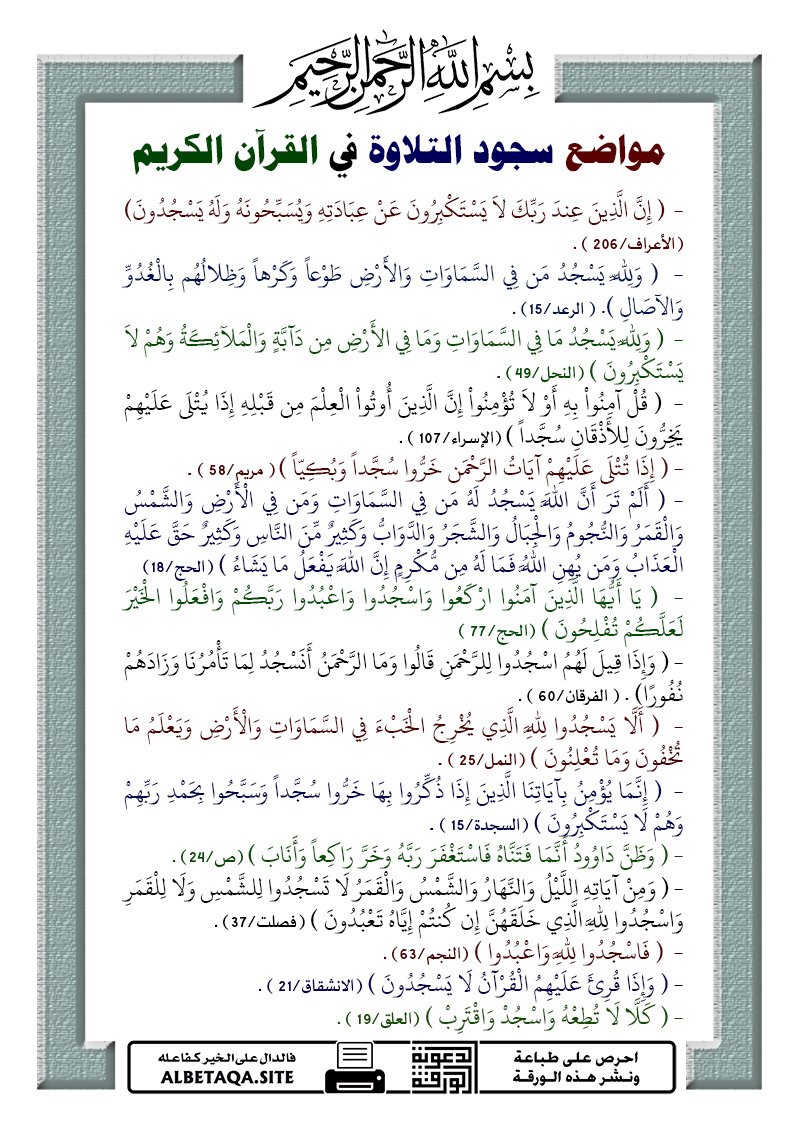 بِسْمِ اللَّهِ الرَّحْمَنِ الرَّحِيمِ
مواضع سجود التلاوة في القرآن الكريم
- ( إِنَّ الَّذِينَ عِندَ رَبِّكَ لاَ يَسْتَكْبِرُونَ عَنْ عِبَادَتِهِ وَيُسَبِّحُونَهُ وَلَهُ يَسْجُدُونَ)
(الأعراف/206 ) .
- ( وَلِلّهِ يَسْجُدُ مَن فِي السَّمَاوَاتِ وَالأَرْضِ طَوْعاً وَكَرْهاً وَظِلالُهُم بِالْغُدُوِّ
وَالآصَالِ ). ( الرعد/15) .
- ( وَلِلّهِ يَسْجُدُ مَا فِي السَّمَاوَاتِ وَمَا فِي الأَرْضِ مِن دَآبَّةٍ وَالْمَلآئِكَةُ وَهُمْ لاَ
يَسْتَكْبِرُونَ ) (النحل/49) .
- ( قُلْ آمِنُواْ بِهِ أَوْ لاَ تُؤْمِنُواْ إِنَّ الَّذِينَ أُوتُواْ الْعِلْمَ مِن قَبْلِهِ إِذَا يُتْلَى عَلَيْهِمْ
يَخِرُّونَ لِلأَذْقَانِ سُجَّداً ) (الإسراء/107 ) .
- ( إِذَا تُتْلَى عَلَيْهِمْ آيَاتُ الرَّحْمَن خَرُّوا سُجَّداً وَبُكِيّاً )( مريم/58 ) .
- ( أَلَمْ تَرَ أَنَّ اللَّهَ يَسْجُدُ لَهُ مَن فِي السَّمَاوَاتِ وَمَن فِي الْأَرْضِ وَالشَّمْسُ
وَالْقَمَرُ وَالنُّجُومُ وَالْجِبَالُ وَالشَّجَرُ وَالدَّوَابُّ وَكَثِيرٌ مِّنَ النَّاسِ وَكَثِيرٌ حَقَّ عَلَيْهِ
الْعَذَابُ وَمَن يُهِنِ اللَّهُ فَمَا لَهُ مِن مُّكْرِمٍ إِنَّ اللَّهَ يَفْعَلُ مَا يَشَاءُ ) (الحج/18)
- ( يَا أَيُّهَا الَّذِينَ آمَنُوا ارْكَعُوا وَاسْجُدُوا وَاعْبُدُوا رَبَّكُمْ وَافْعَلُوا الْخَيْرَ
لَعَلَّكُمْ تُفْلِحُونَ ) (الحج/77 )
- ( وَإِذَا قِيلَ لَهُمُ اسْجُدُوا لِلرَّحْمَنِ قَالُوا وَمَا الرَّحْمَنُ أَنَسْجُدُ لِمَا تَأْمُرُنَا وَزَادَهُمْ
نُفُورًا) . ( الفرقان/60 ) .
- ( أَلَّا يَسْجُدُوا لِلَّهِ الَّذِي يُخْرِجُ الْخَبْءَ فِي السَّمَاوَاتِ وَالْأَرْضِ وَيَعْلَمُ مَا
تُخْفُونَ وَمَا تُعْلِنُونَ ) (النمل/25 ) .
- ( إِنَّمَا يُؤْمِنُ بِآيَاتِنَا الَّذِينَ إِذَا ذُكِّرُوا بِهَا خَرُّوا سُجَّداً وَسَبَّحُوا بِحَمْدِ رَبِّهِمْ
وَهُمْ لَا يَسْتَكْبِرُونَ ) (السجدة/15 ) .
- ( وَظَنَّ دَاوُودُ أَنَّمَا فَتَنَّاهُ فَاسْتَغْفَرَ رَبَّهُ وَخَرَّ رَاكِعاً وَأَنَابَ ) (ص/24) .
- ( وَمِنْ آيَاتِهِ اللَّيْلُ وَالنَّهَارُ وَالشَّمْسُ وَالْقَمَرُ لَا تَسْجُدُوا لِلشَّمْسِ وَلَا لِلْقَمَرِ
وَاسْجُدُوا لِلَّهِ الَّذِي خَلَقَهُنَّ إِن كُنتُمْ إِيَّاهُ تَعْبُدُونَ ) (فصلت/37) .
- ( فَاسْجُدُوا لِلَّهِ وَاعْبُدُوا ) (النجم/63) .
- ( وَإِذَا قُرِئَ عَلَيْهِمُ الْقُرْآنُ لَا يَسْجُدُونَ ) (الانشقاق/21 ) .
- ( كَلَّا لَا تُطِعْهُ وَاسْجُدْ وَاقْتَرِبْ ) (العلق/19 ) .
احرص على طباعة
ونشر هذه الورقة
الورقة
الدعوية
فالدال على الخير كفاعله
ALBETAQA.SITE